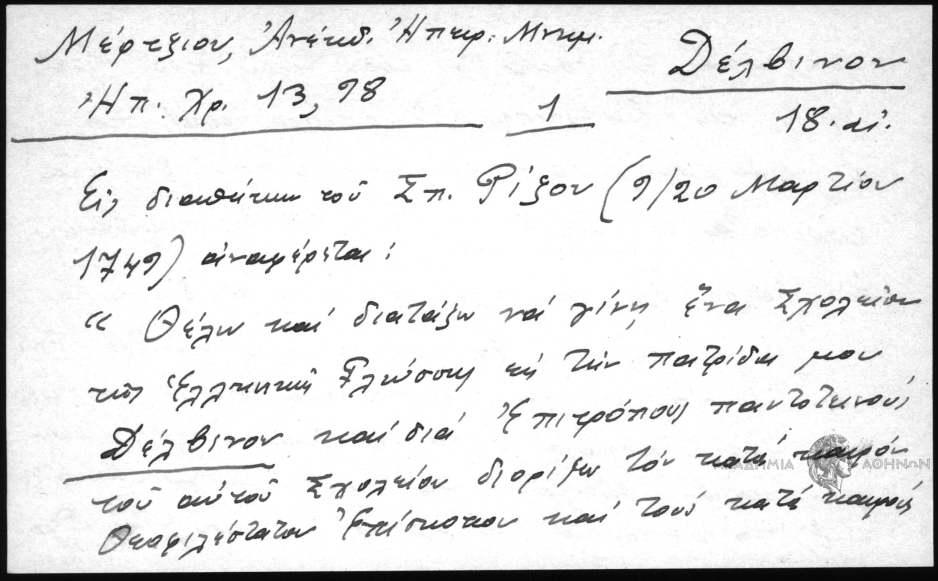 Μέρτζιον, Ἀνέκδ. Ἠπειρ. Μνημ.
Ἠπ. Χρ. 13, 98
1
Δέλβινον
18. αἰ.
Εἰς διαθήκην τοῦ Σπ. Ρίζου (9/20 Μαρτίου
1749) ἀναφέρεται:
“ Θέλω καὶ διατάζω νά γίνῃ ἕνα Σχολεῖον
τῆς Ἑλληνικῆς Γλώσσης εἰς τὴν πατρίδα μου
Δέλβινον καὶ διά Ἐπιτρόπους παντοτεινούς
τοῦ αὐτοῦ Σχολείου διορίζω τόν κατά καιρόν
Θεοφιλέστατον Ἐπίσκοπον καὶ τούς κατά καιρούς
ΑΚΑΔΗΜΙΑ ΑΘΗΝΩΝ